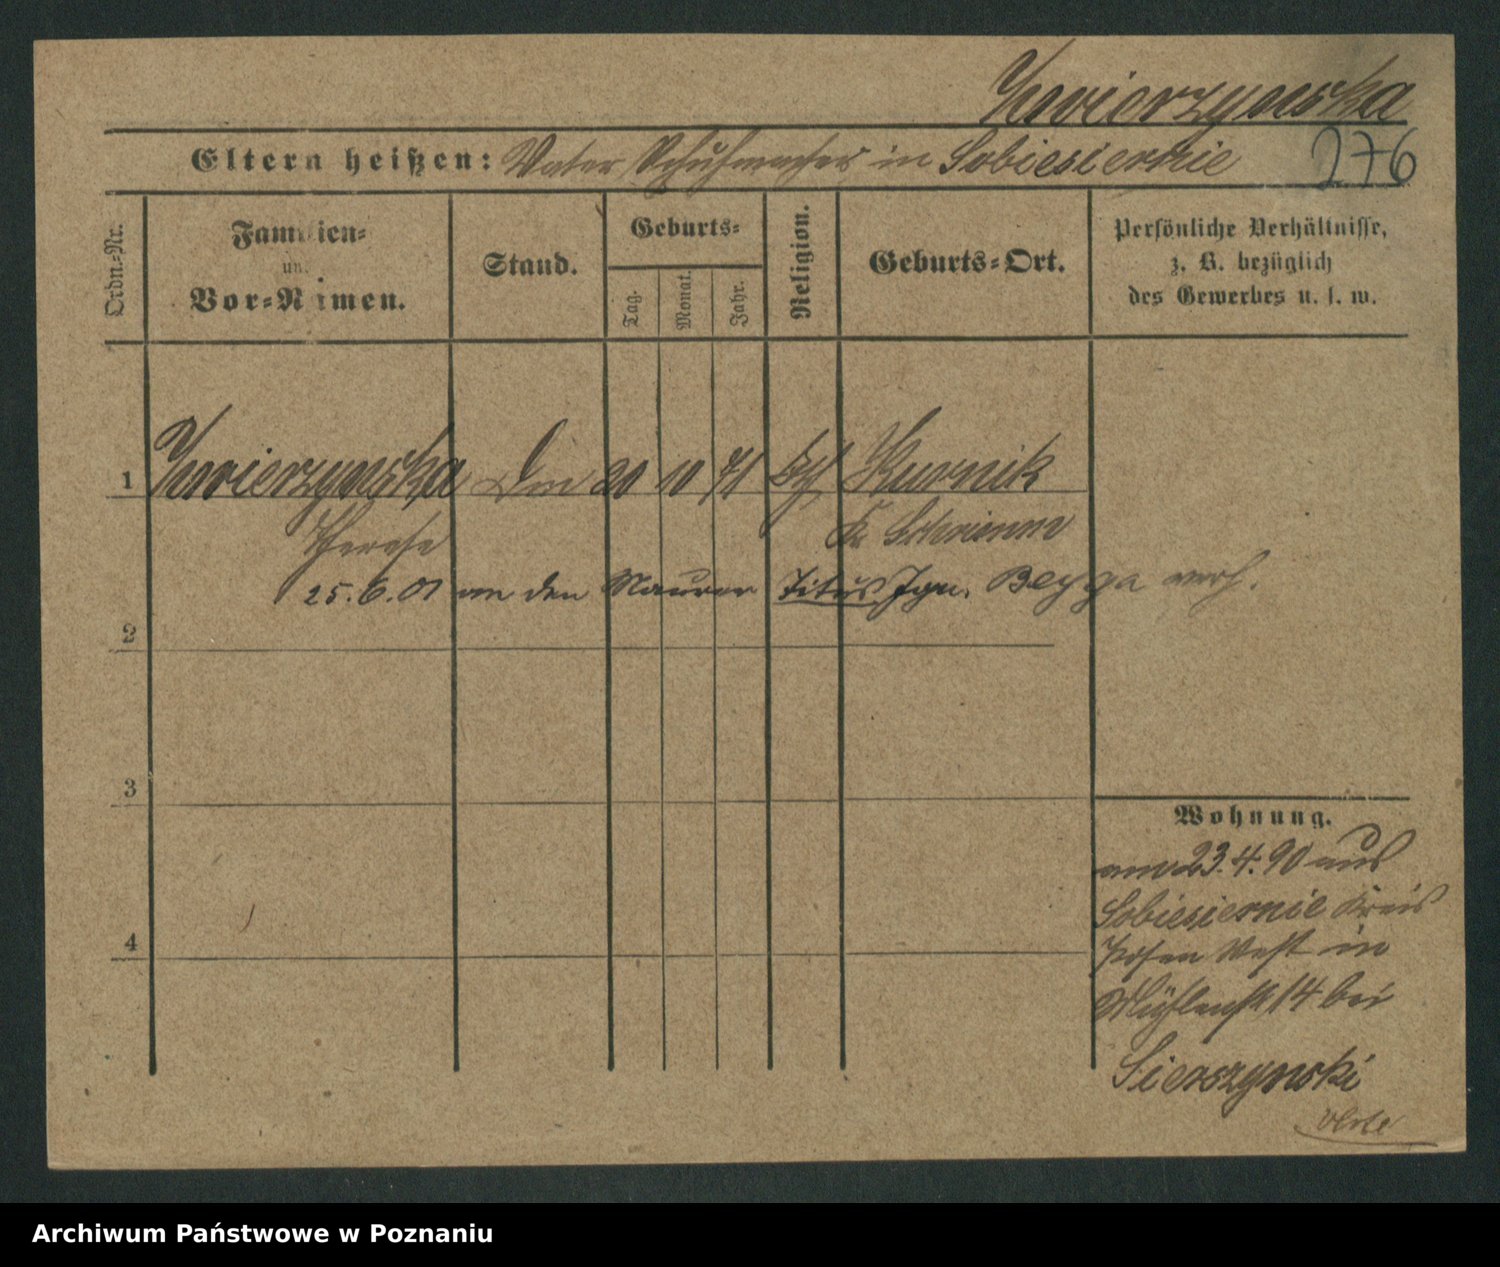 Zwierzynska
276
Eltern heißen: Vater Schuhmacher in Sobiesiernie
Ordn.-Nr.
Familien-
un
Vor-Namen.
Stand.
Geburts-
Tag.
Monat.
Jahr.
Religion.
Geburts-Ort.
Persönliche Verhältnisse,
z. B. bezüglich
des Gewerbes u. s. w.
1 Zwierzynska 20 10 71 kth Kurnik
Therese Kr Schrimm
25.6.01 an den Maurer Titus Ign. Beyga verh.
2
3
4
Wohnung.
am 23.4.90 aus
Sobiesiernie Kreis
Posen West in
Mühlenstr 14 bei
Sierszynski
Archiwum Państwowe w Poznaniu